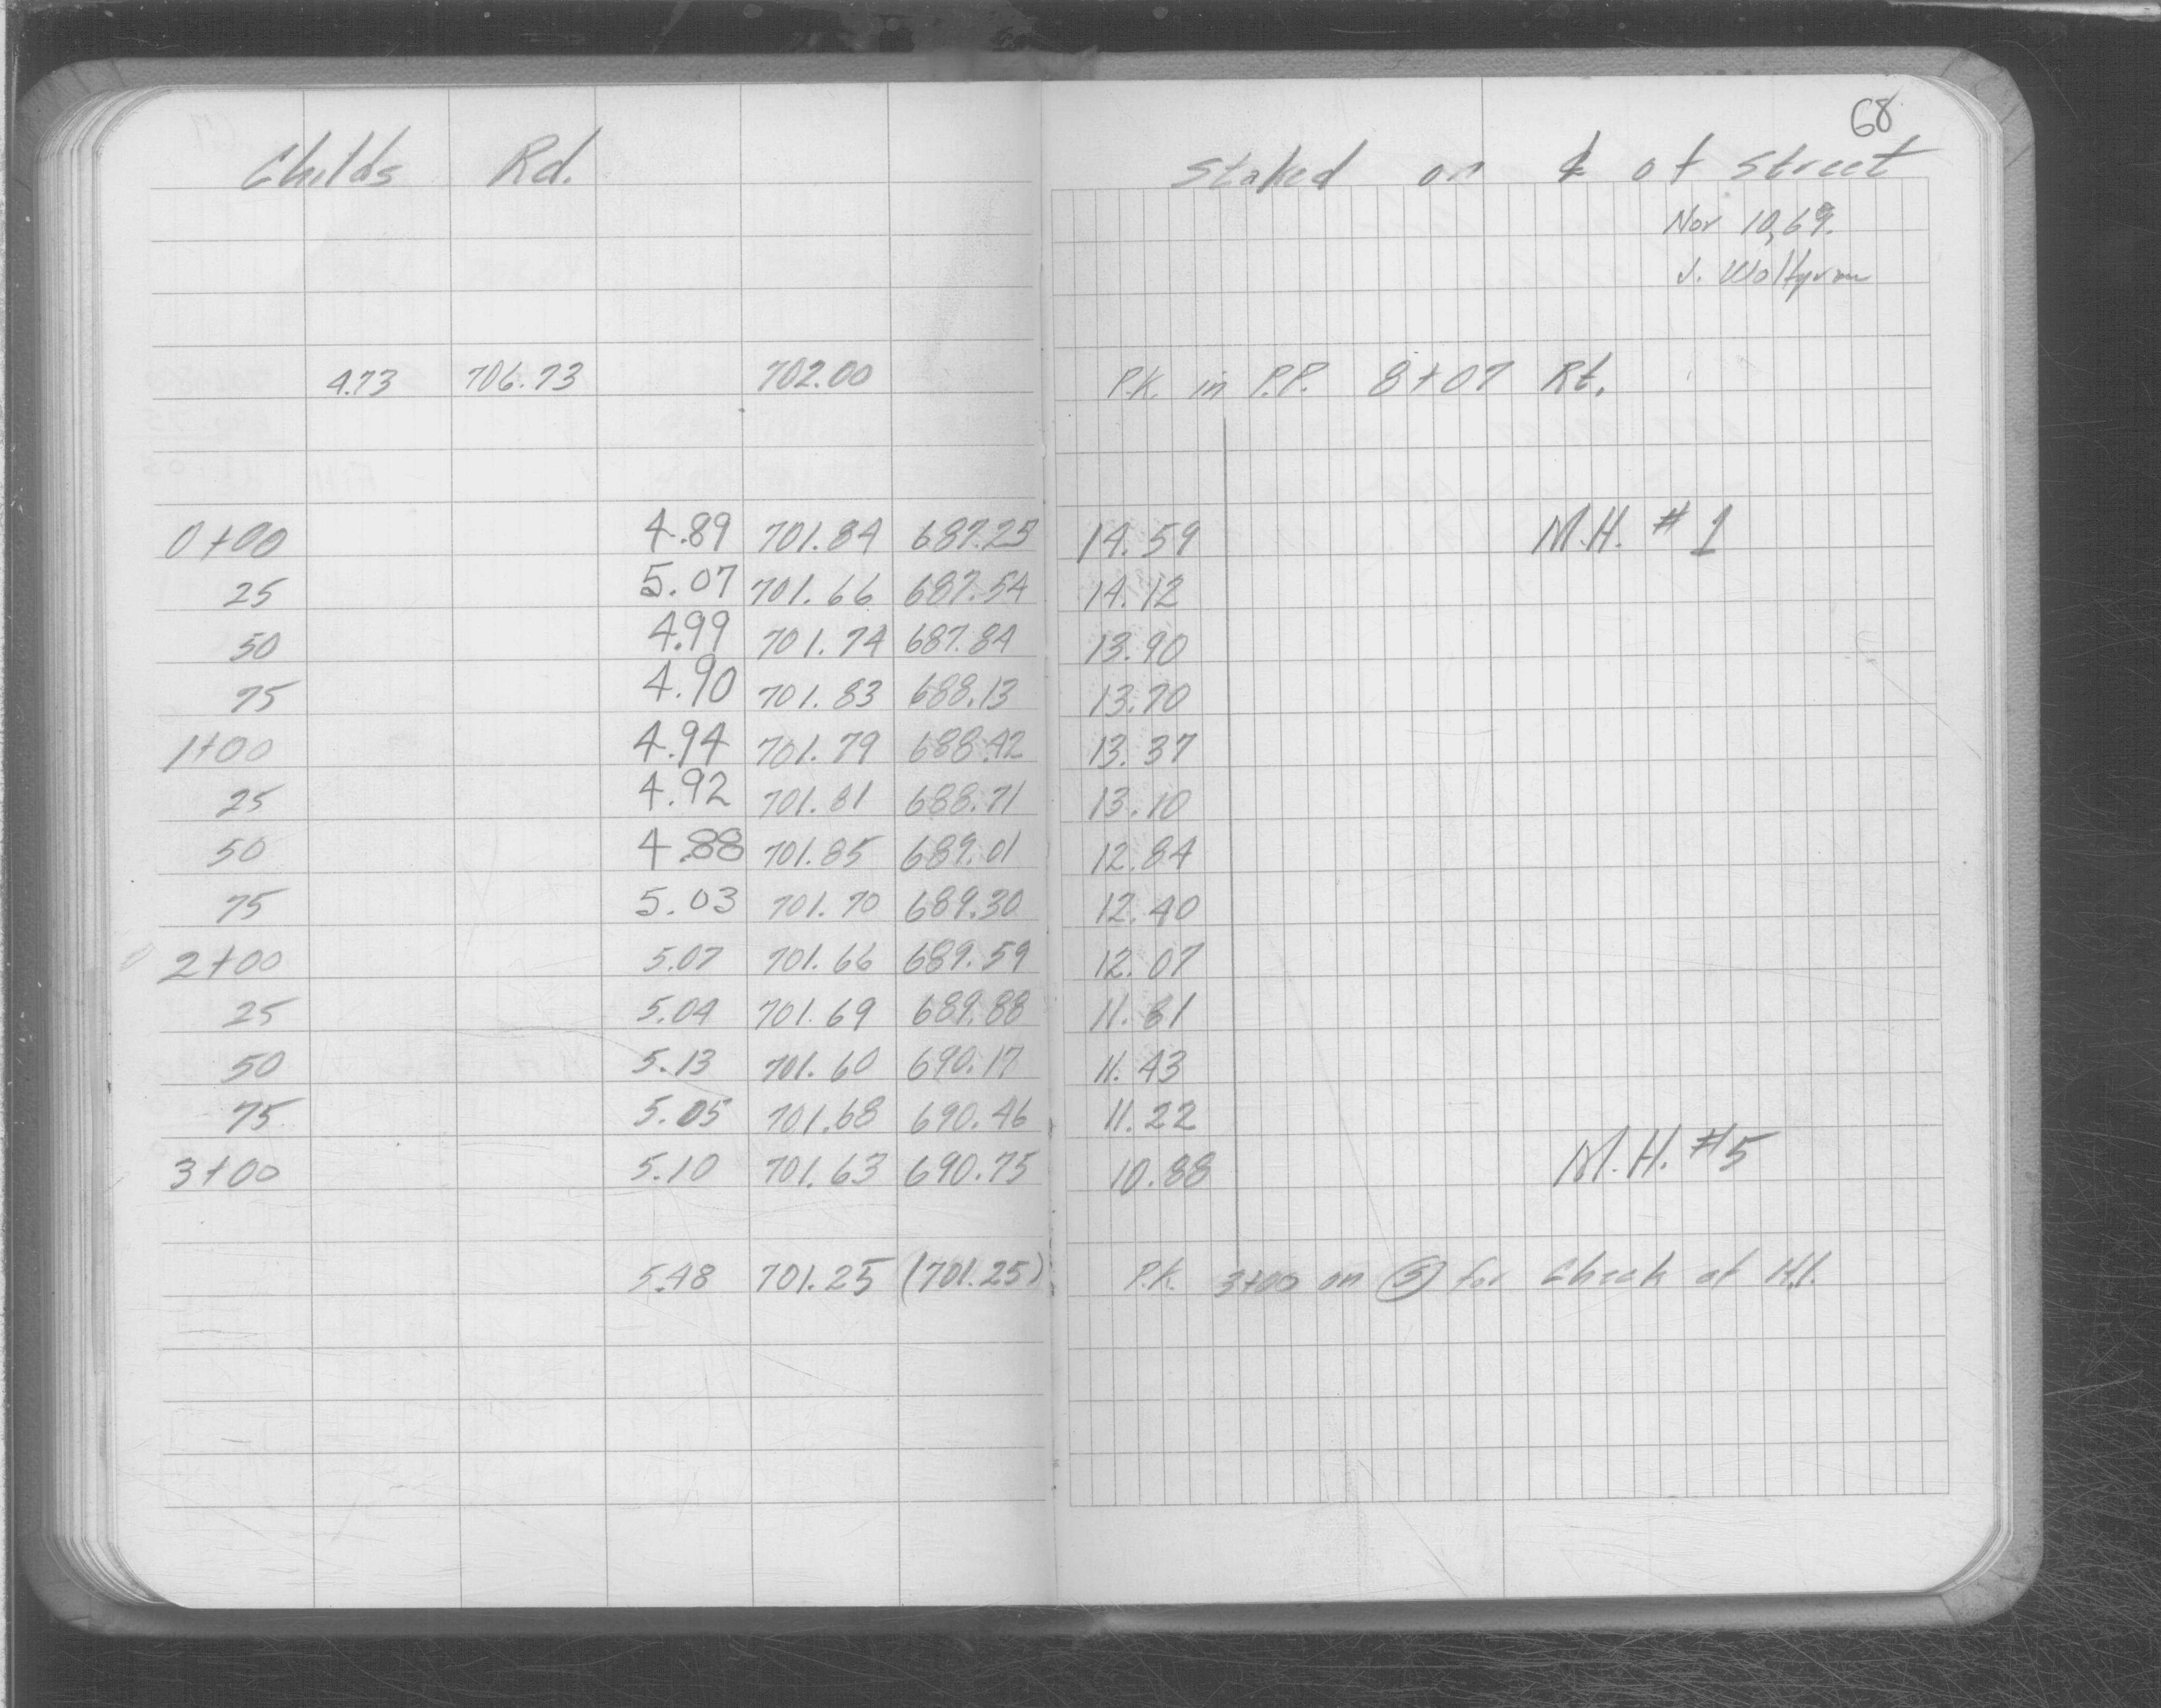 68
Childs Rd. Staked on ℄ of Street
Nov 10, 69.
J. Wolfgram
4.73 706.73 702.00 P.K. in P.P. 8+07 Rt.
0+00 4.89 701.84 687.25 14.59 M.H. # 1
25 5.07 701.66 687.54 14.12
50 4.99 701.74 687.84 13.90
75 4.90 701.83 688.13 13.70
1+00 4.94 701.79 688.42 13.37
25 4.92 701.81 688.71 13.10
50 4.88 701.85 689.01 12.84
75 5.03 701.70 689.30 12.40
2+00 5.07 701.66 689.59 12.07
25 5.04 701.69 689.88 11.81
50 5.13 701.60 690.17 11.43
75 5.05 701.68 690.46 11.22
3+00 5.10 701.63 690.75 10.88 M.H. #5
5.48 701.25 (701.25) P.K. 3+00 on (S) for Check at H.I.